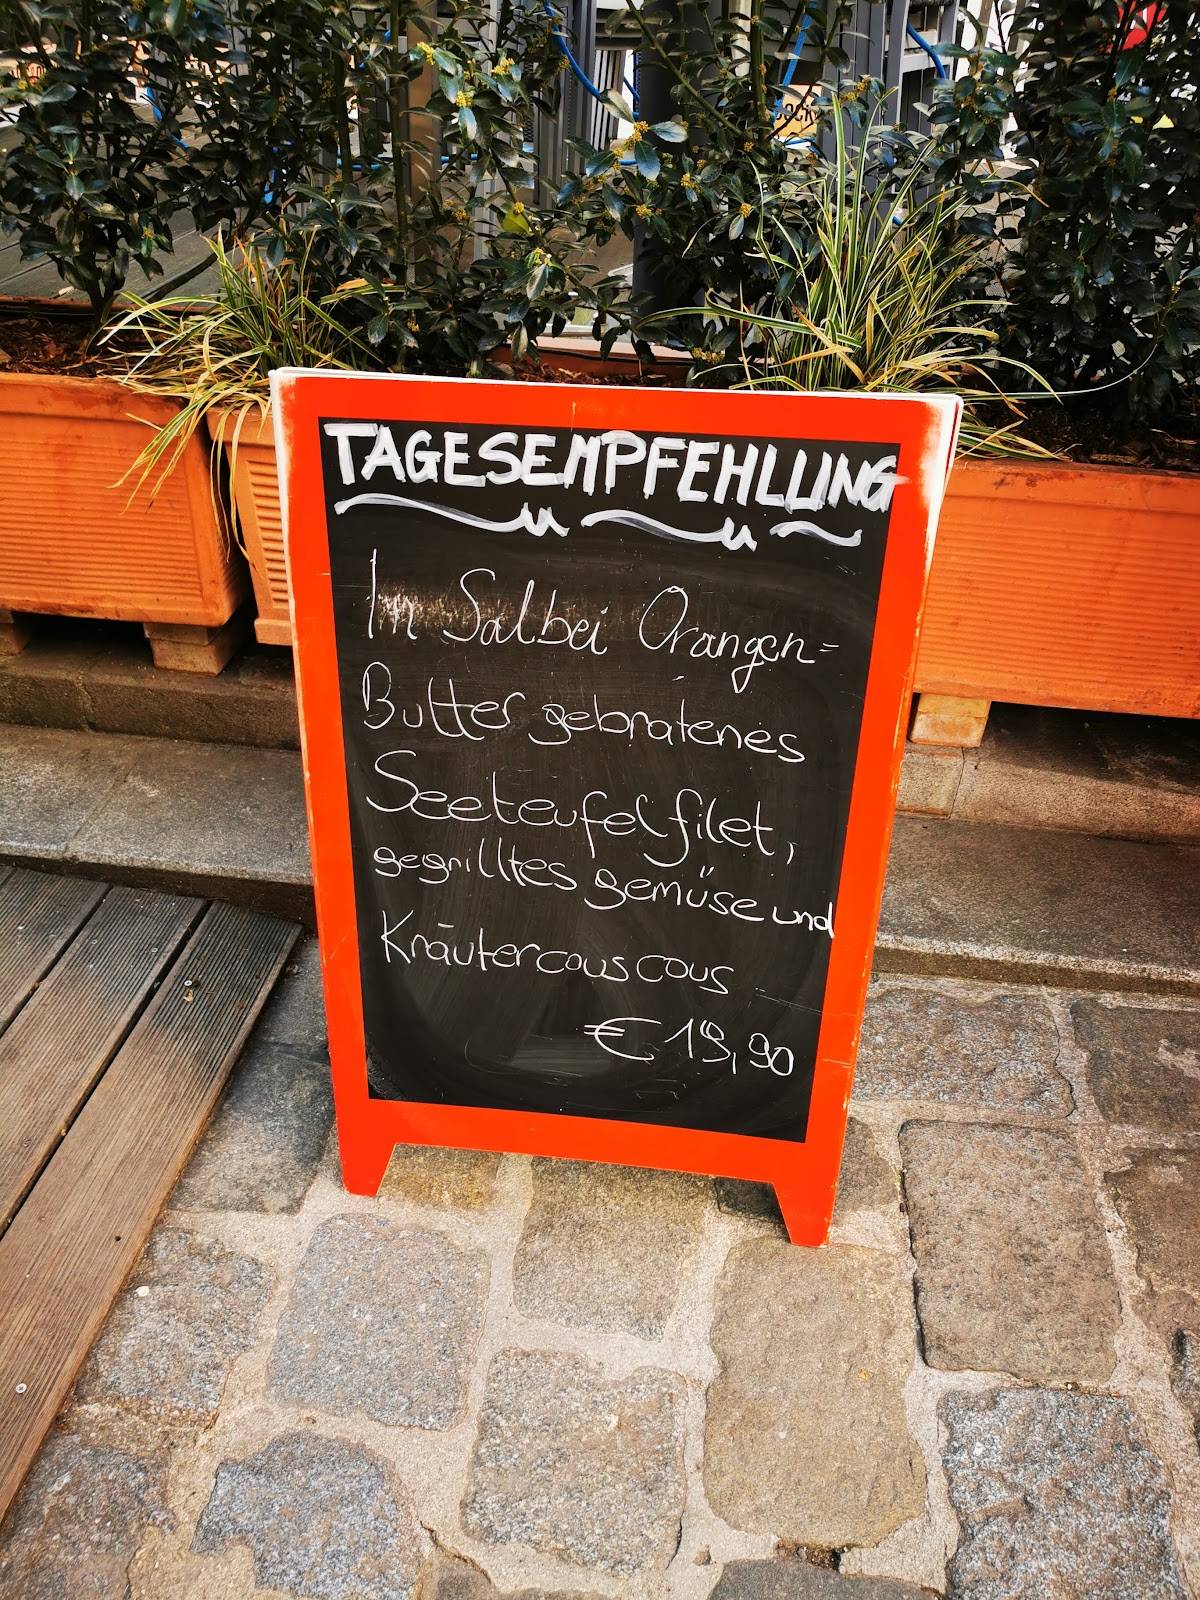 TAGESEMPFEHLUNG
In Salbei Orangen=
Butter gebratenes
Seeteufelfilet,
gegrilltes gemüse und
Kräutercouscous
€ 19,90